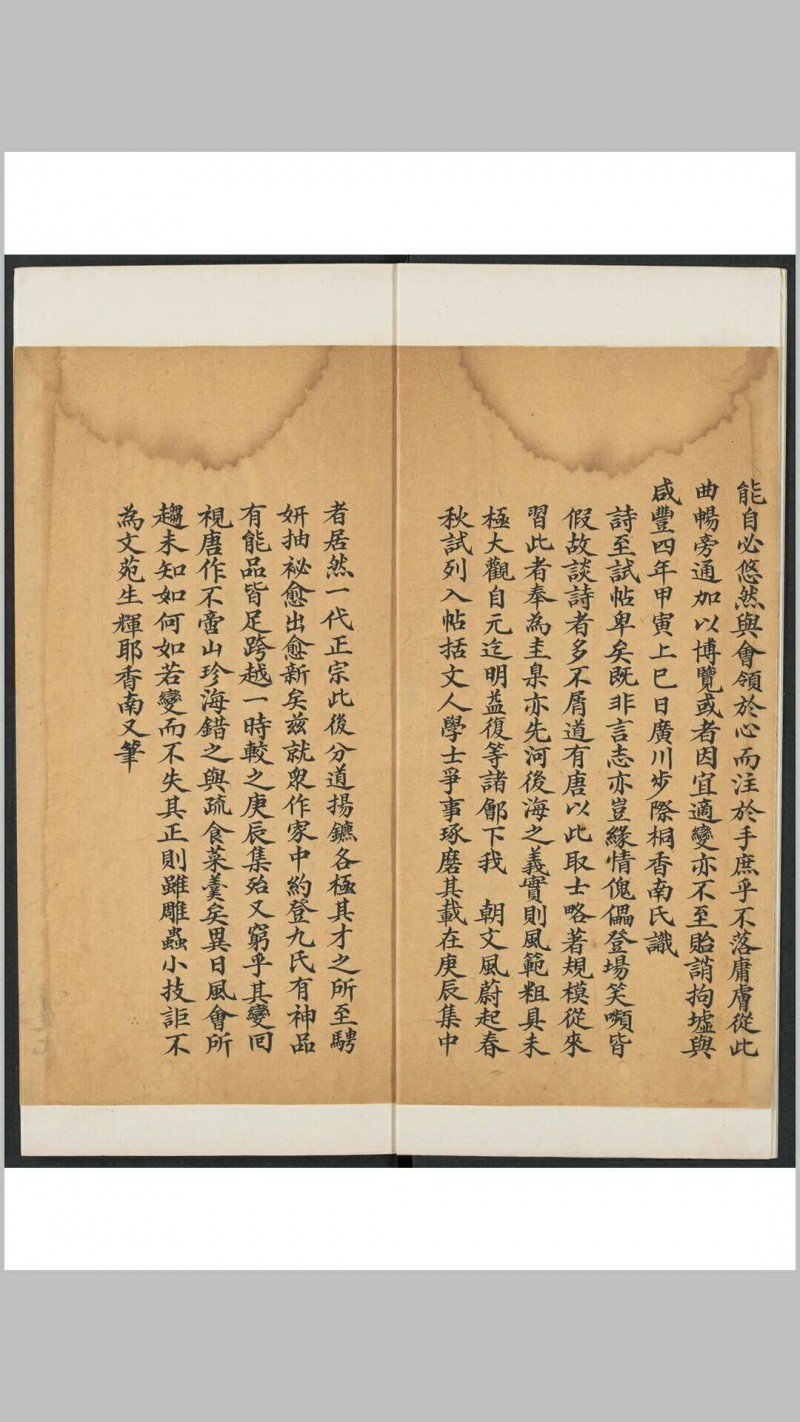 能自必悠然與會領於心而注於手庶乎不落庸膚從此
曲暢旁通加以博覽或者因宜適變亦不至貽誚拘墟與
咸豐四年甲寅上巳日廣川步際桐香南氏識
詩至試帖卑矣既非言志亦豈緣情傀儡登場笑嚬皆
假故談詩者多不屑道有唐以此取士略著規模從來
習此者奉為圭臬亦先河後海之義實則風範粗具未
極大觀自元迄明益復等諸鄶下我 朝文風蔚起春
秋試列入帖括文人學士爭事琢磨其載在庚辰集中
者居然一代正宗此後分道揚鑣各極其才之所至騁
妍抽祕愈出愈新矣茲就眾作家中約登九氏有神品
有能品皆足跨越一時較之庚辰集殆又窮乎其變回
視唐作不啻山珍海錯之與疏食菜羹矣異日風會所
趨未知如何如若變而不失其正則雖雕蟲小技詎不
為文苑生輝耶香南又筆